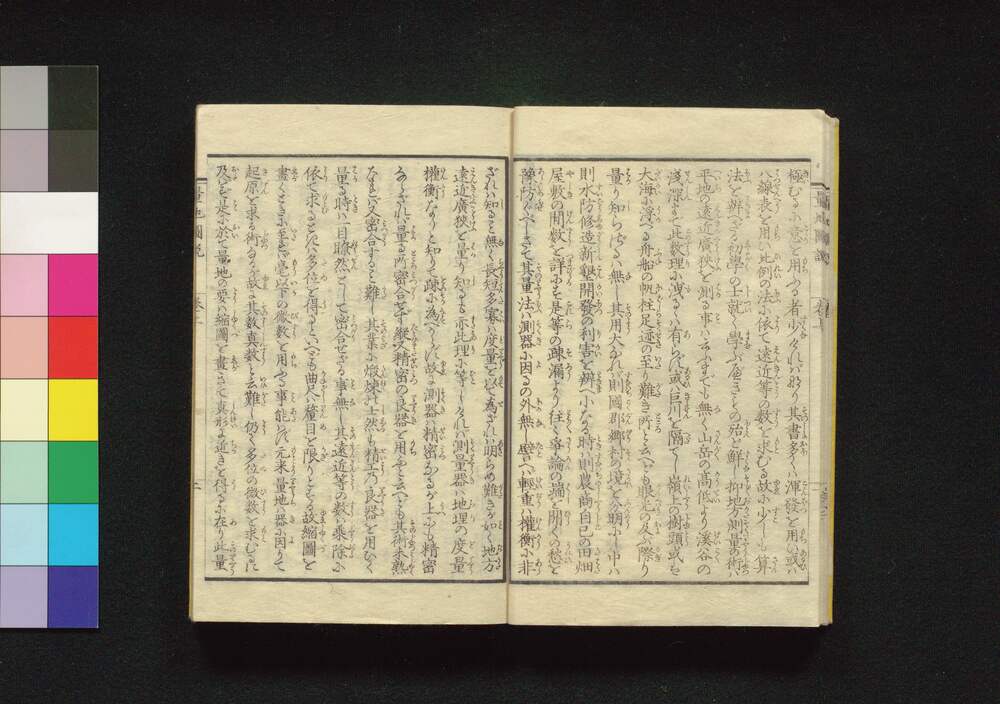 極むるに意を用ふる者少ければなり其書多くハ渾發を用ひ或ハ
八線表を用ひ比例の法に依て遠近等の数を求むる故に少しも算
法を辨ざる初學の士就く學ぶべきもの殆と鮮し抑地方測量の術ハ
平地の遠近廣狭を測る事ハ云ふまでも無く山岳の高低より溪谷の
淺深まで此数理に洩るゝハ有らざれバ或ハ巨川を隔てし嶺上の樹頭或ハ
大海に浮べる舟船の帆柱足迹の至り難き所と云へども眼光の及ぶ際り
量り知らざるハ無し其用大なれバ則國郡郷村の境を分明にし中ハ
則水防修造新墾開發の利害を辨じ小なる時ハ則農商自己の田畑
屋敷の間数を詳にし是等の疎漏より往々爭論の端を開くの愁を
豫防ぐべしさて其量法ハ測器に因るの外無し譬へバ輕重ハ權衡に非
ざれバ知ること無く長短多寡ハ度量を以て為ざれバ明らめ難きが如く地方
遠近廣狭を量り知るも亦此理に等しけれバ測量器ハ地理の度量
權衡なりと知りて疎に為べからず故に測器ハ精密なるが上にも精密
ならざれバ量る所密合せず縱又精密の良器を用ふと云へども其術未熟
なれバ又密合すること難し其業に煅煉の士然も精工の良器を用ひて
量る時ハ一目瞭然として密合せざる事無し其遠近等の数ハ乗除に
依て求るときハ多位を得るといへども曲尺ハ釐目を限りとする故縮圖を
畫くときに至てハ毫以下の微数を用ふる事能ハず元来量地ハ器に因りて
起原を求る術なる故に其数真数と云難し仍て多位の微数を求むるに
及バず是に於て量地の要ハ縮圖を畫きて真形に近きを得るに在り此量
量地圖説 巻上